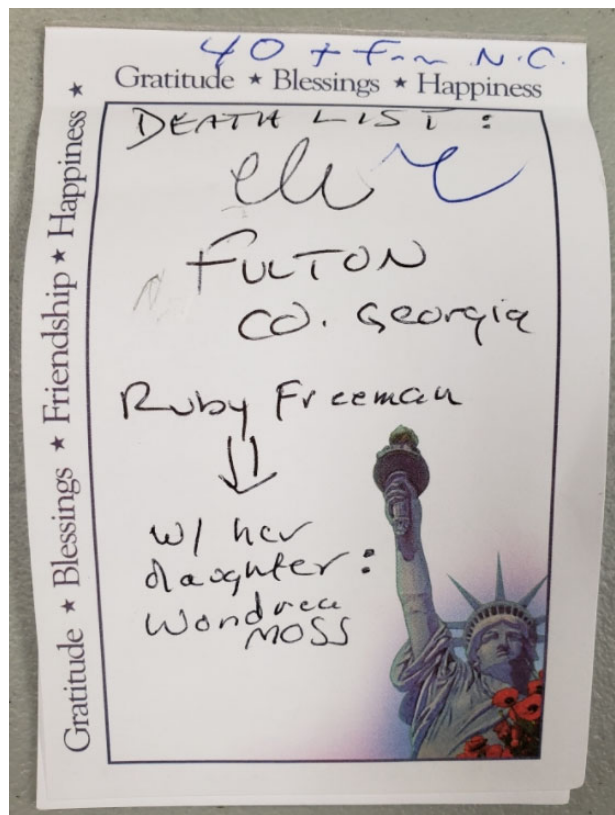 40 + from N.C.
Gratitude ★ Blessings ★ Happiness
Gratitude ★ Blessings ★ Friendship ★ Happiness ★
DEATH LIST :
FULTON
CO. Georgia
Ruby Freeman
w/ her
daughter :
Wandrea
MOSS